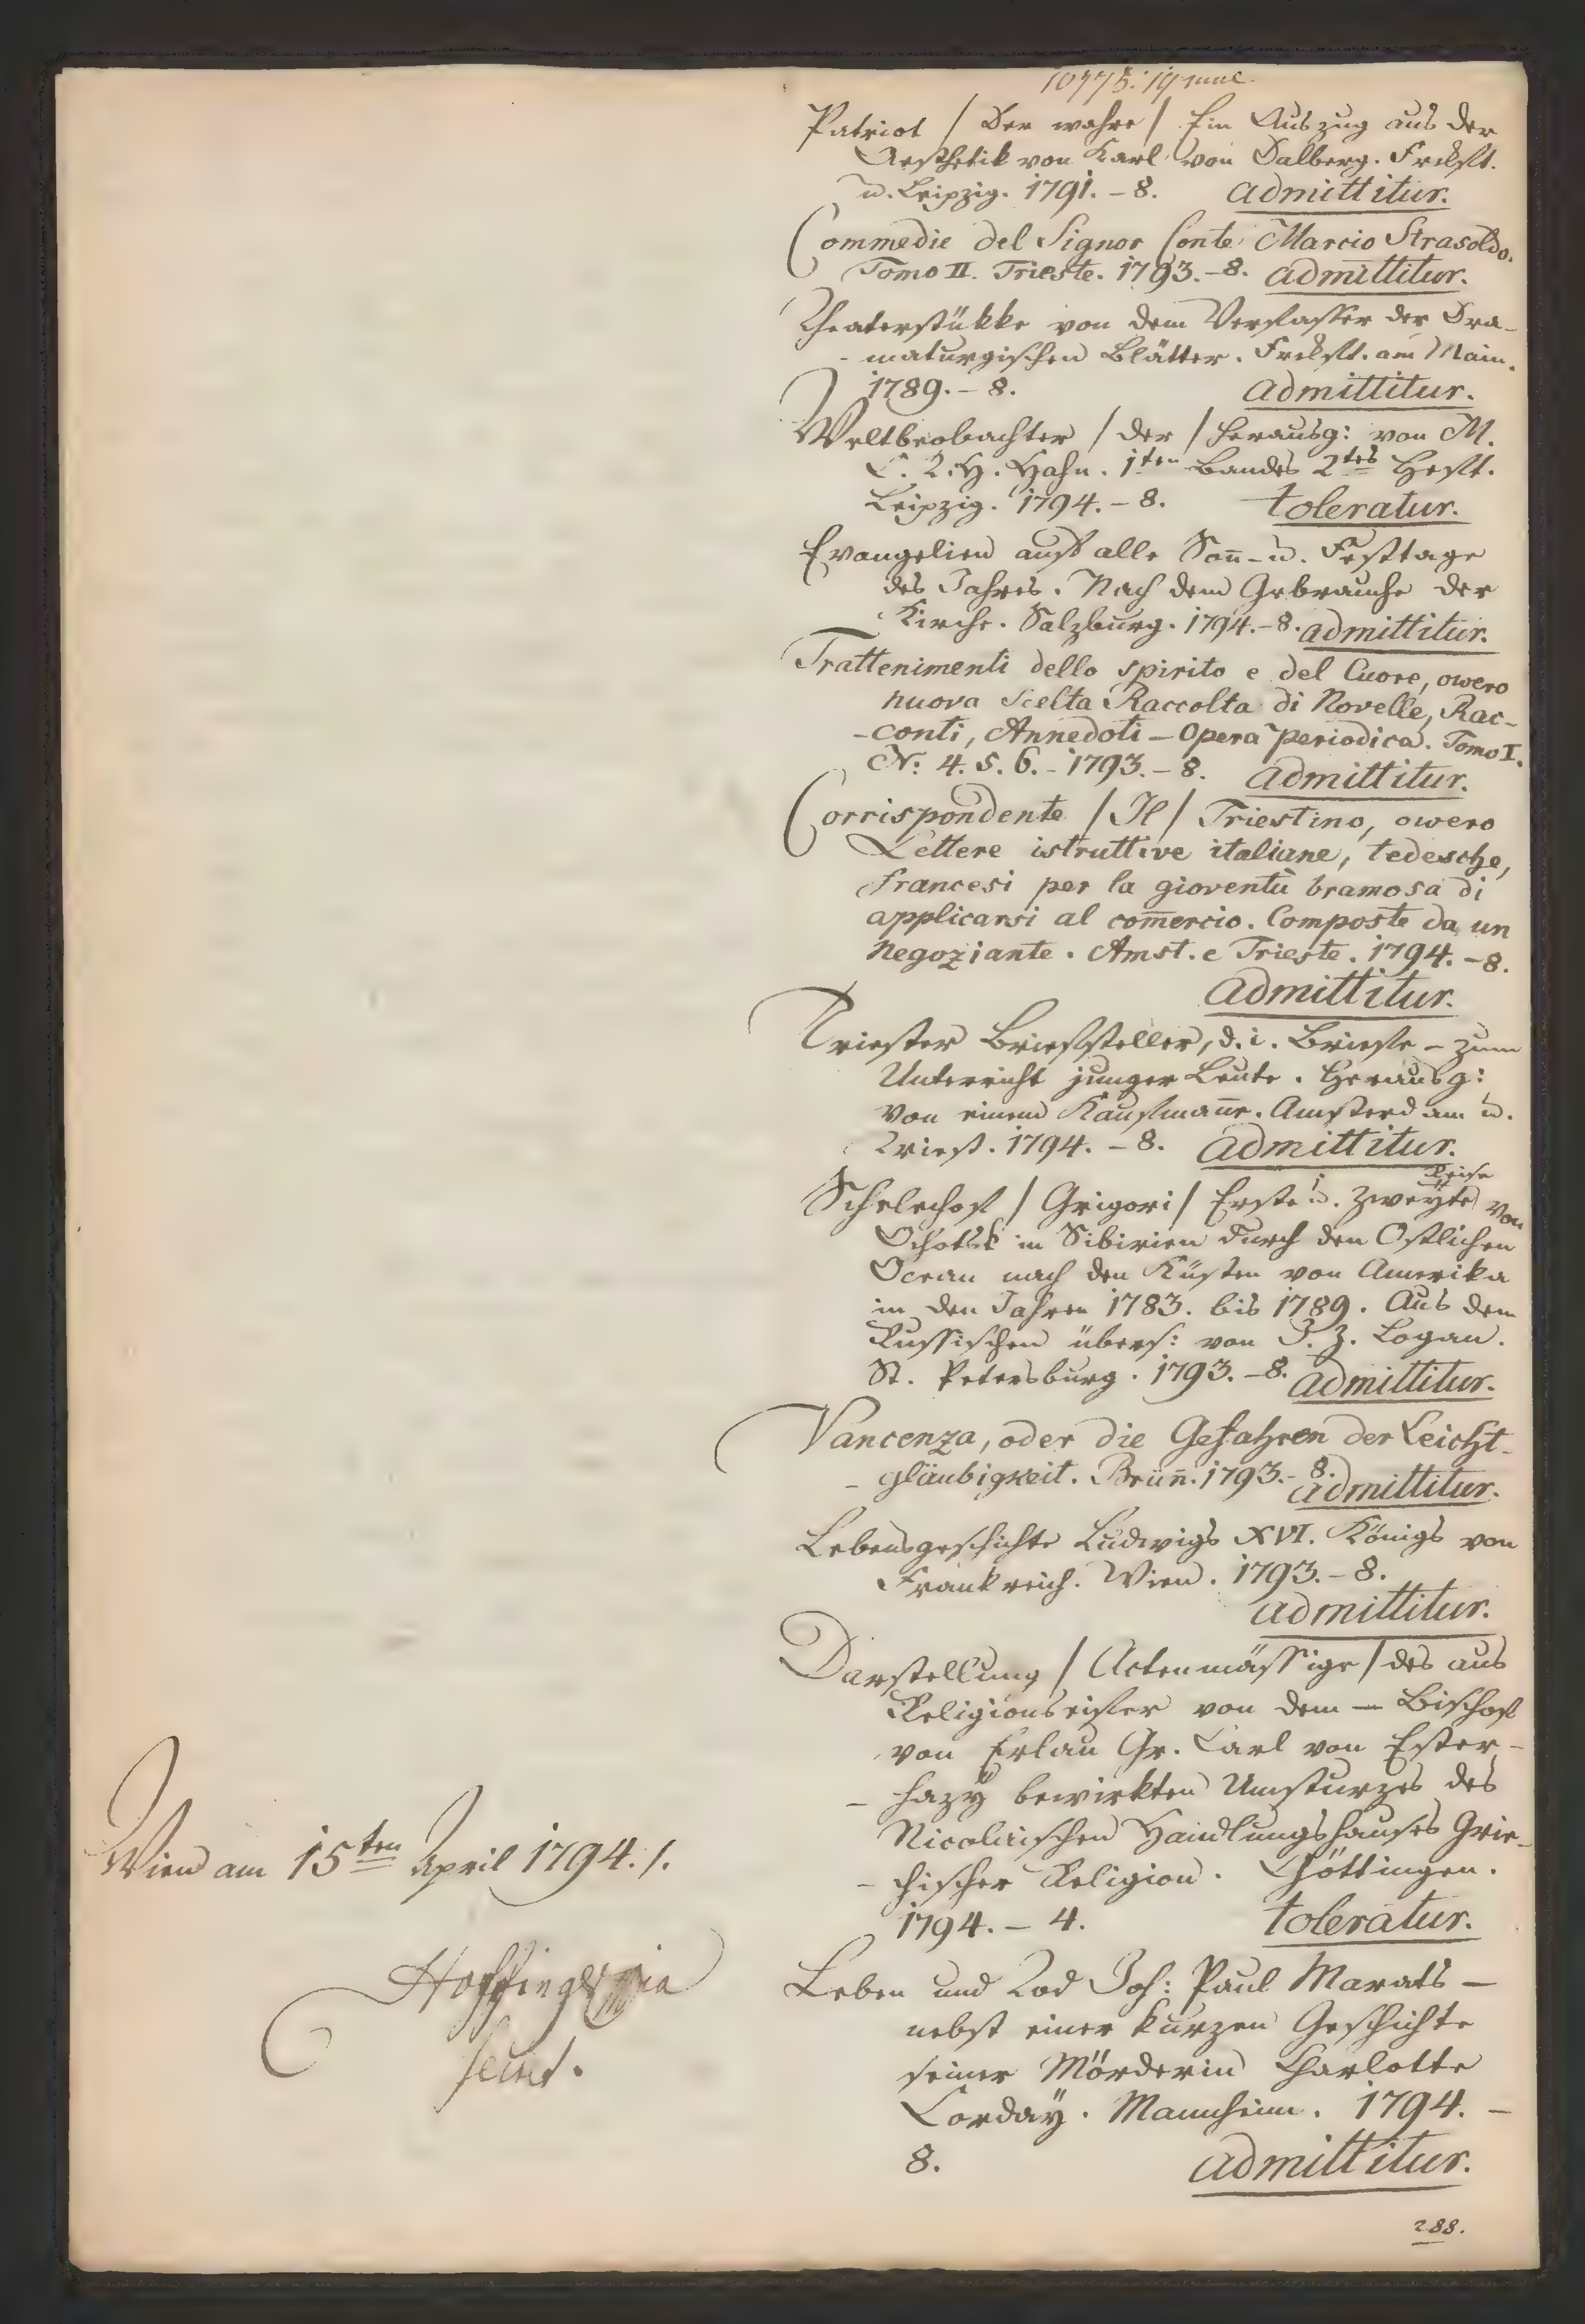 Patriot / Der wahre / Ein Auszug aus der
Aesthetik von Karl von Dalberg. Frckft.
u. Leipzig. 1791. – 8. admittitur.
Commedie del Signor Conte Marcio Strasoldo.
Tomo II. Trieste. 1793. – 8. admittitur.
Theaterstükke von dem Verfasser der Dra-
- maturgischen Blätter. Frckft. am Main.
1789. – 8. admittitur.
Weltbeobachter / der / herausg: von M.
C. T. H. Hahn. 1ten Bandes 2tes Heft.
Leipzig. 1794. – 8. toleratur.
Evangelien auf alle Son̄- u. Festtage
des Jahres. Nach dem Gebrauche der
Kirche. Salzburg. 1794. – 8. admittitur.
Trattenimenti dello spirito e del Cuore, overo
nuova scelta Raccolta di Novelle, Rac-
- conti, Annedoti – Opera periodica. Tomo I.
N: 4. 5. 6. – 1793. – 8. admittitur.
Corrispondente / Il / Triestino, overo
Lettere istruttive italiane, tedesche,
francesi per la gioventù bramosa di
applicarsi al com̄ercio. Composte da un
Negoziante. Amst. e Trieste. 1794. – 8.
admittitur.
Triester Briefsteller, d. i. Briefe – zum
Unterricht junger Leute. Herausg:
von einem Kaufman̄e. Amsterdam u.
Triest. 1794. – 8. admittitur.
Reise
Schelechof / Grigori / Erste u. zweÿte von
Ochotsk in Sibirien durch den Östlichen
Ocean nach den Küsten von Amerika
in den Jahren 1783. bis 1789. Aus dem
Russischen übers: von J. Z. Logan.
St. Petersburg. 1793. – 8. admittitur.
Vancenza, oder die Gefahren der Leicht-
- gläubigkeit. Brün̄. 1793. – 8.
admittitur.
Lebensgeschichte Ludwigs XVI. Königs von
Frankreich. Wien. 1793. – 8.
admittitur.
Darstellung / Actenmässige / des aus
Religionseifer von dem – Bischof
von Erlau Gr. Carl von Ester-
- hazÿ bewirkten Umsturzes des
Nicolaischen Handlungshauses Grie-
- chischer Religion. Göttingen.
1794. – 4. toleratur.
Leben und Tod Joh: Paul Marats –
nebst einer kurzen Geschichte
seiner Mörderin Charlotte
Cordaÿ. Mannheim. 1794. –
8. admittitur.
288.
Wien am 15ten April 1794. /.